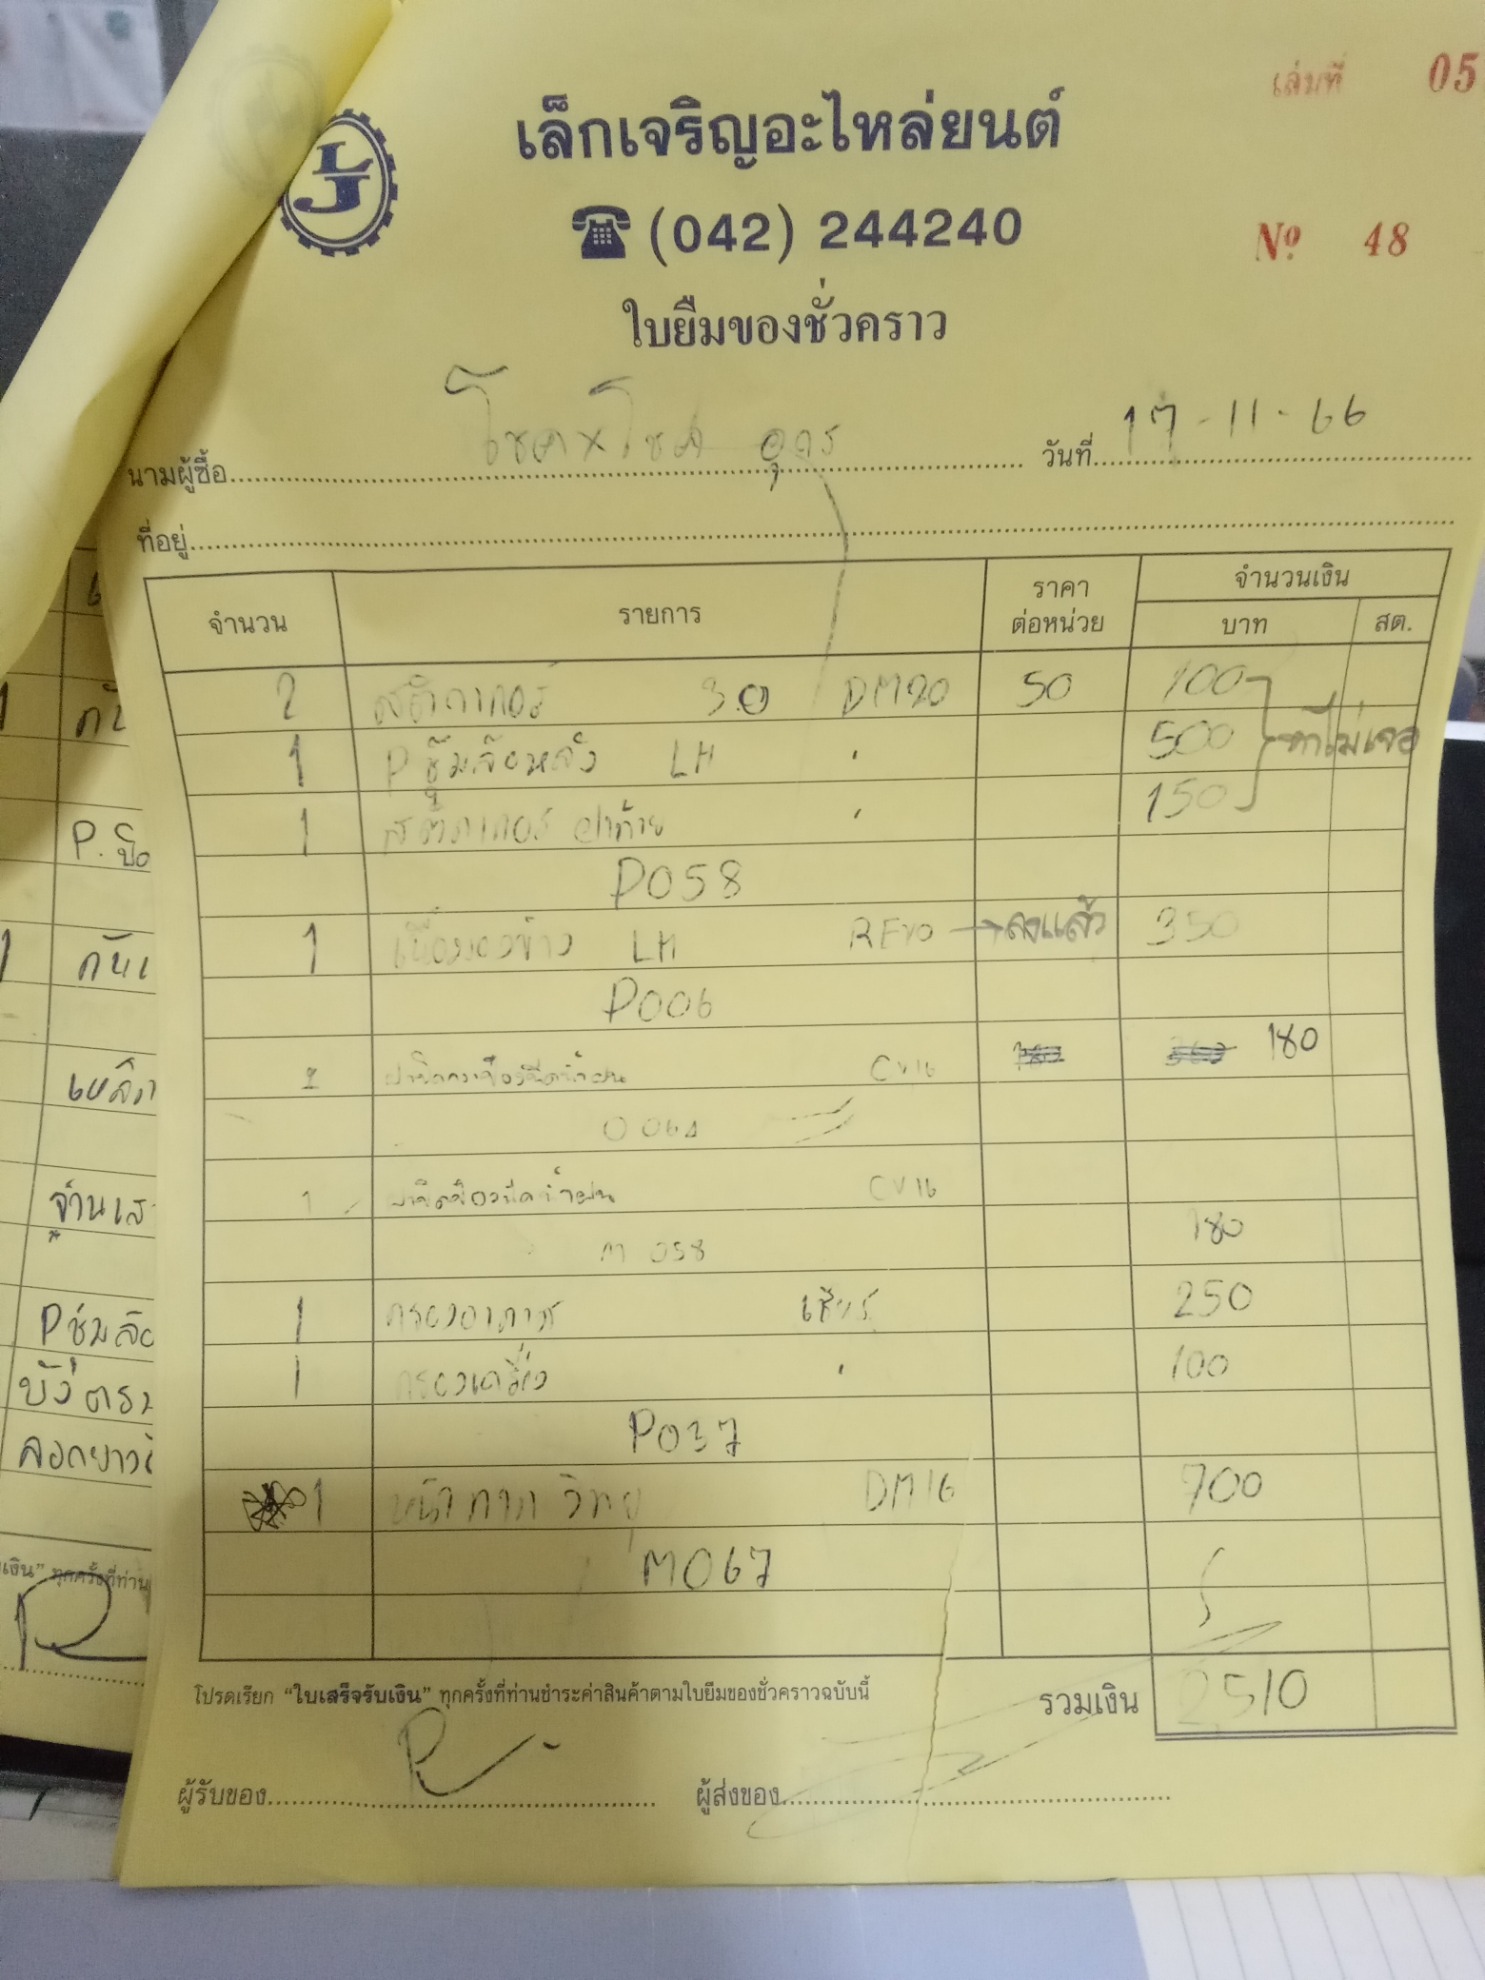 เล่มที่ 05
LJ
เล็กเจริญอะไหล่ยนต์
☎ (042) 244240
Nº 48
ใบยืมของชั่วคราว
นามผู้ซื้อ โชค×โชค อุดร วันที่ 17-11-66
ที่อยู่
จำนวน รายการ ราคาต่อหน่วย จำนวนเงิน
บาท สต.
2 สติกเกอร์ 3.0 DM20 50 100
1 P ซุ้มล้อหลัง LH " 500 หาไม่เจอ
1 สติกเกอร์ ฝาท้าย " 150
P058
1 LH REVO → ลงแล้ว 350
P006
CV16 180
1 CV16
M 058 180
1 กรองอากาศ เซียร์ 250
1 กรองเครื่อง " 100
P037
1 หน้ากาก วิทยุ DM16 700
M067
โปรดเรียก “ใบเสร็จรับเงิน” ทุกครั้งที่ท่านชำระค่าสินค้าตามใบยืมของชั่วคราวฉบับนี้
รวมเงิน 2,510
ผู้รับของ ผู้ส่งของ
P.ปิด
จานเส
P ซุ้มล้อ
เงิน” ทุกครั้งที่ท่าน